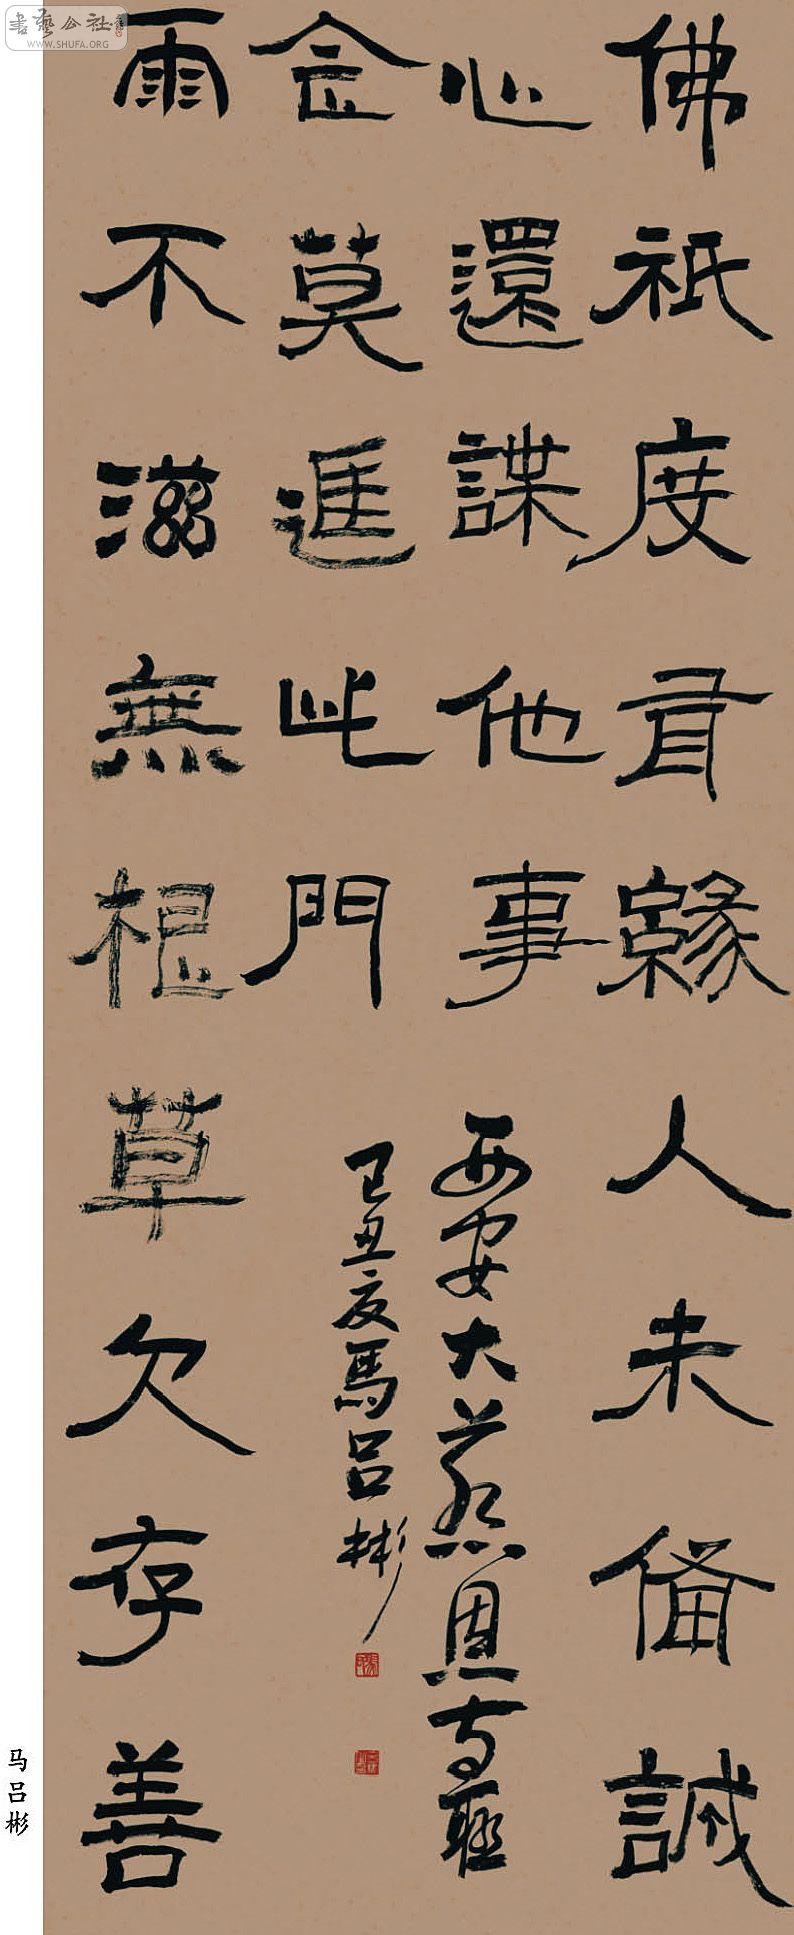 佛祇度有緣人未備誠
心還謀他事
西安大慈恩寺聯
雨不滋無根草欠存善
念莫進此門
己丑夏馬吕彬
马吕彬
書藝公社
WWW.SHUFA.ORG